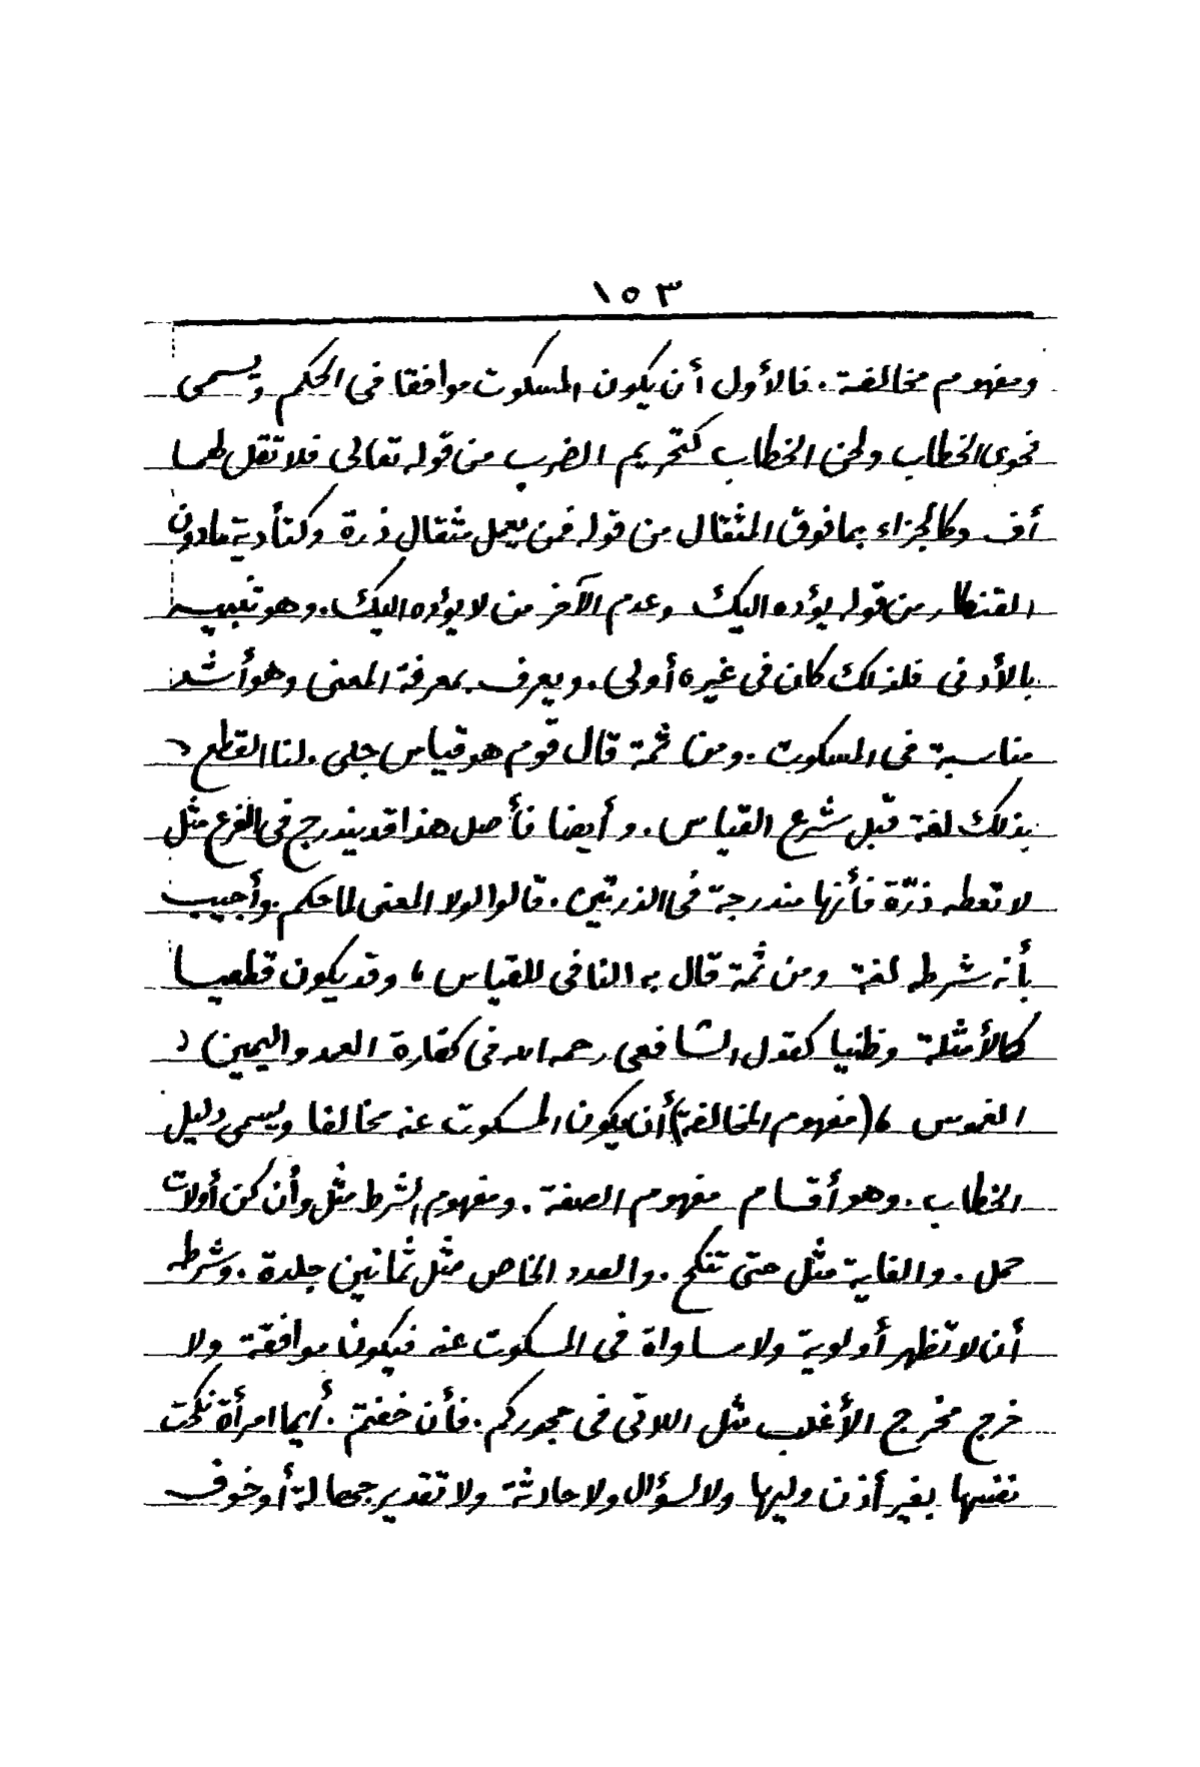 ١٥٣
ومفهوم مخالفة . فالأول أن يكون المسكوت موافقا فى الحكم ويسمى
فحوى الخطاب ولحن الخطاب كتحريم الضرب من قوله تعالى فلا تقل لهما
أف وكالجزاء بما فوق المثقال من قوله فمن يعمل مثقال ذرة وكتأدية ما دون
القنطار من قوله يؤده اليك وعدم الآخر من لا يؤده اليك . وهو تنبيه
بالأدنى فلذلك كان فى غيره أولى . ويعرف بمعرفة المعنى وهو أشد
مناسبة فى المسكوت . ومن ثمة قال قوم هو قياس جلى . لنا القطع
بذلك لغة قبل شرع القياس . وأيضا فأصل هذا قد يندرج فى الفرع مثل
لا تعطه ذرّة فأنها مندرجة فى الذرتين . قالوا لولا المعنى لما حكم . وأجيب
بأنه شرطه لغة ومن ثمة قال به النافى للقياس ، وقد يكون قطعيا
كالأمثلة وظنيا كقول الشافعى رحمه الله فى كفارة العمد واليمين
الغموس ، (مفهوم المخالفة) أن يكون المسكوت عنه مخالفا ويسمى دليل
الخطاب . وهو أقسام مفهوم الصفة . ومفهوم الشرط مثل وأن كن أولات
حمل . والغاية مثل حتى تنكح . والعدد الخاص مثل ثمانين جلدة . وشرطه
أن لا تظهر أولوية ولا مساواة فى المسكوت عنه فيكون موافقة ولا
خرج مخرج الأغلب مثل اللاتى فى حجوركم . فأن خفتم . أيما امرأة نكحت
نفسها بغير أذن وليها ولا لسؤال ولا حادثة ولا تقدير جهالة أو خوف